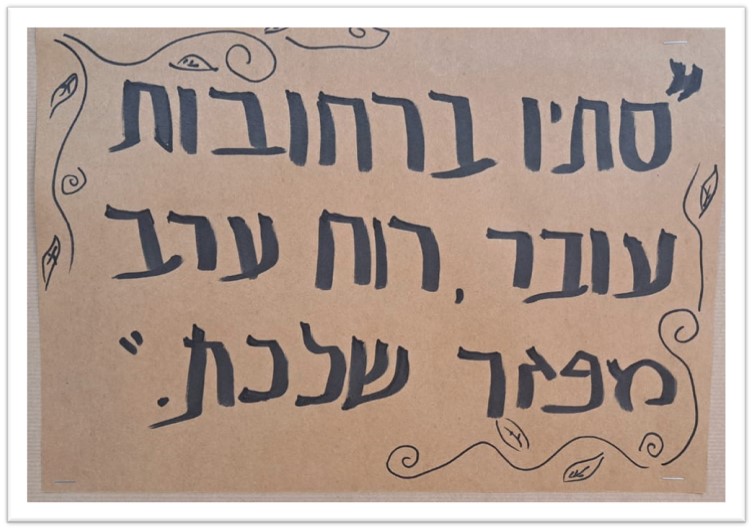 "סתיו ברחובות
עובר, רוח ערב
מפזר שלכת."